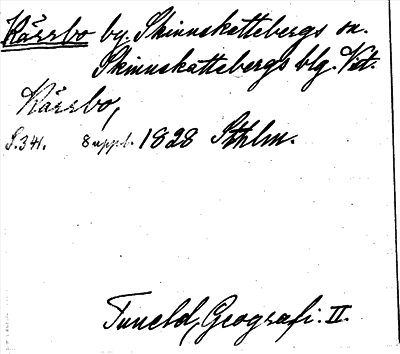 Kärrbo by. Skinnskattebergs sn.
Skinnskattebergs blg. Vst.
Kärrbo,
S. 341. 8 uppl. 1828 Sthlm.
Tuneld, Geografi. II.